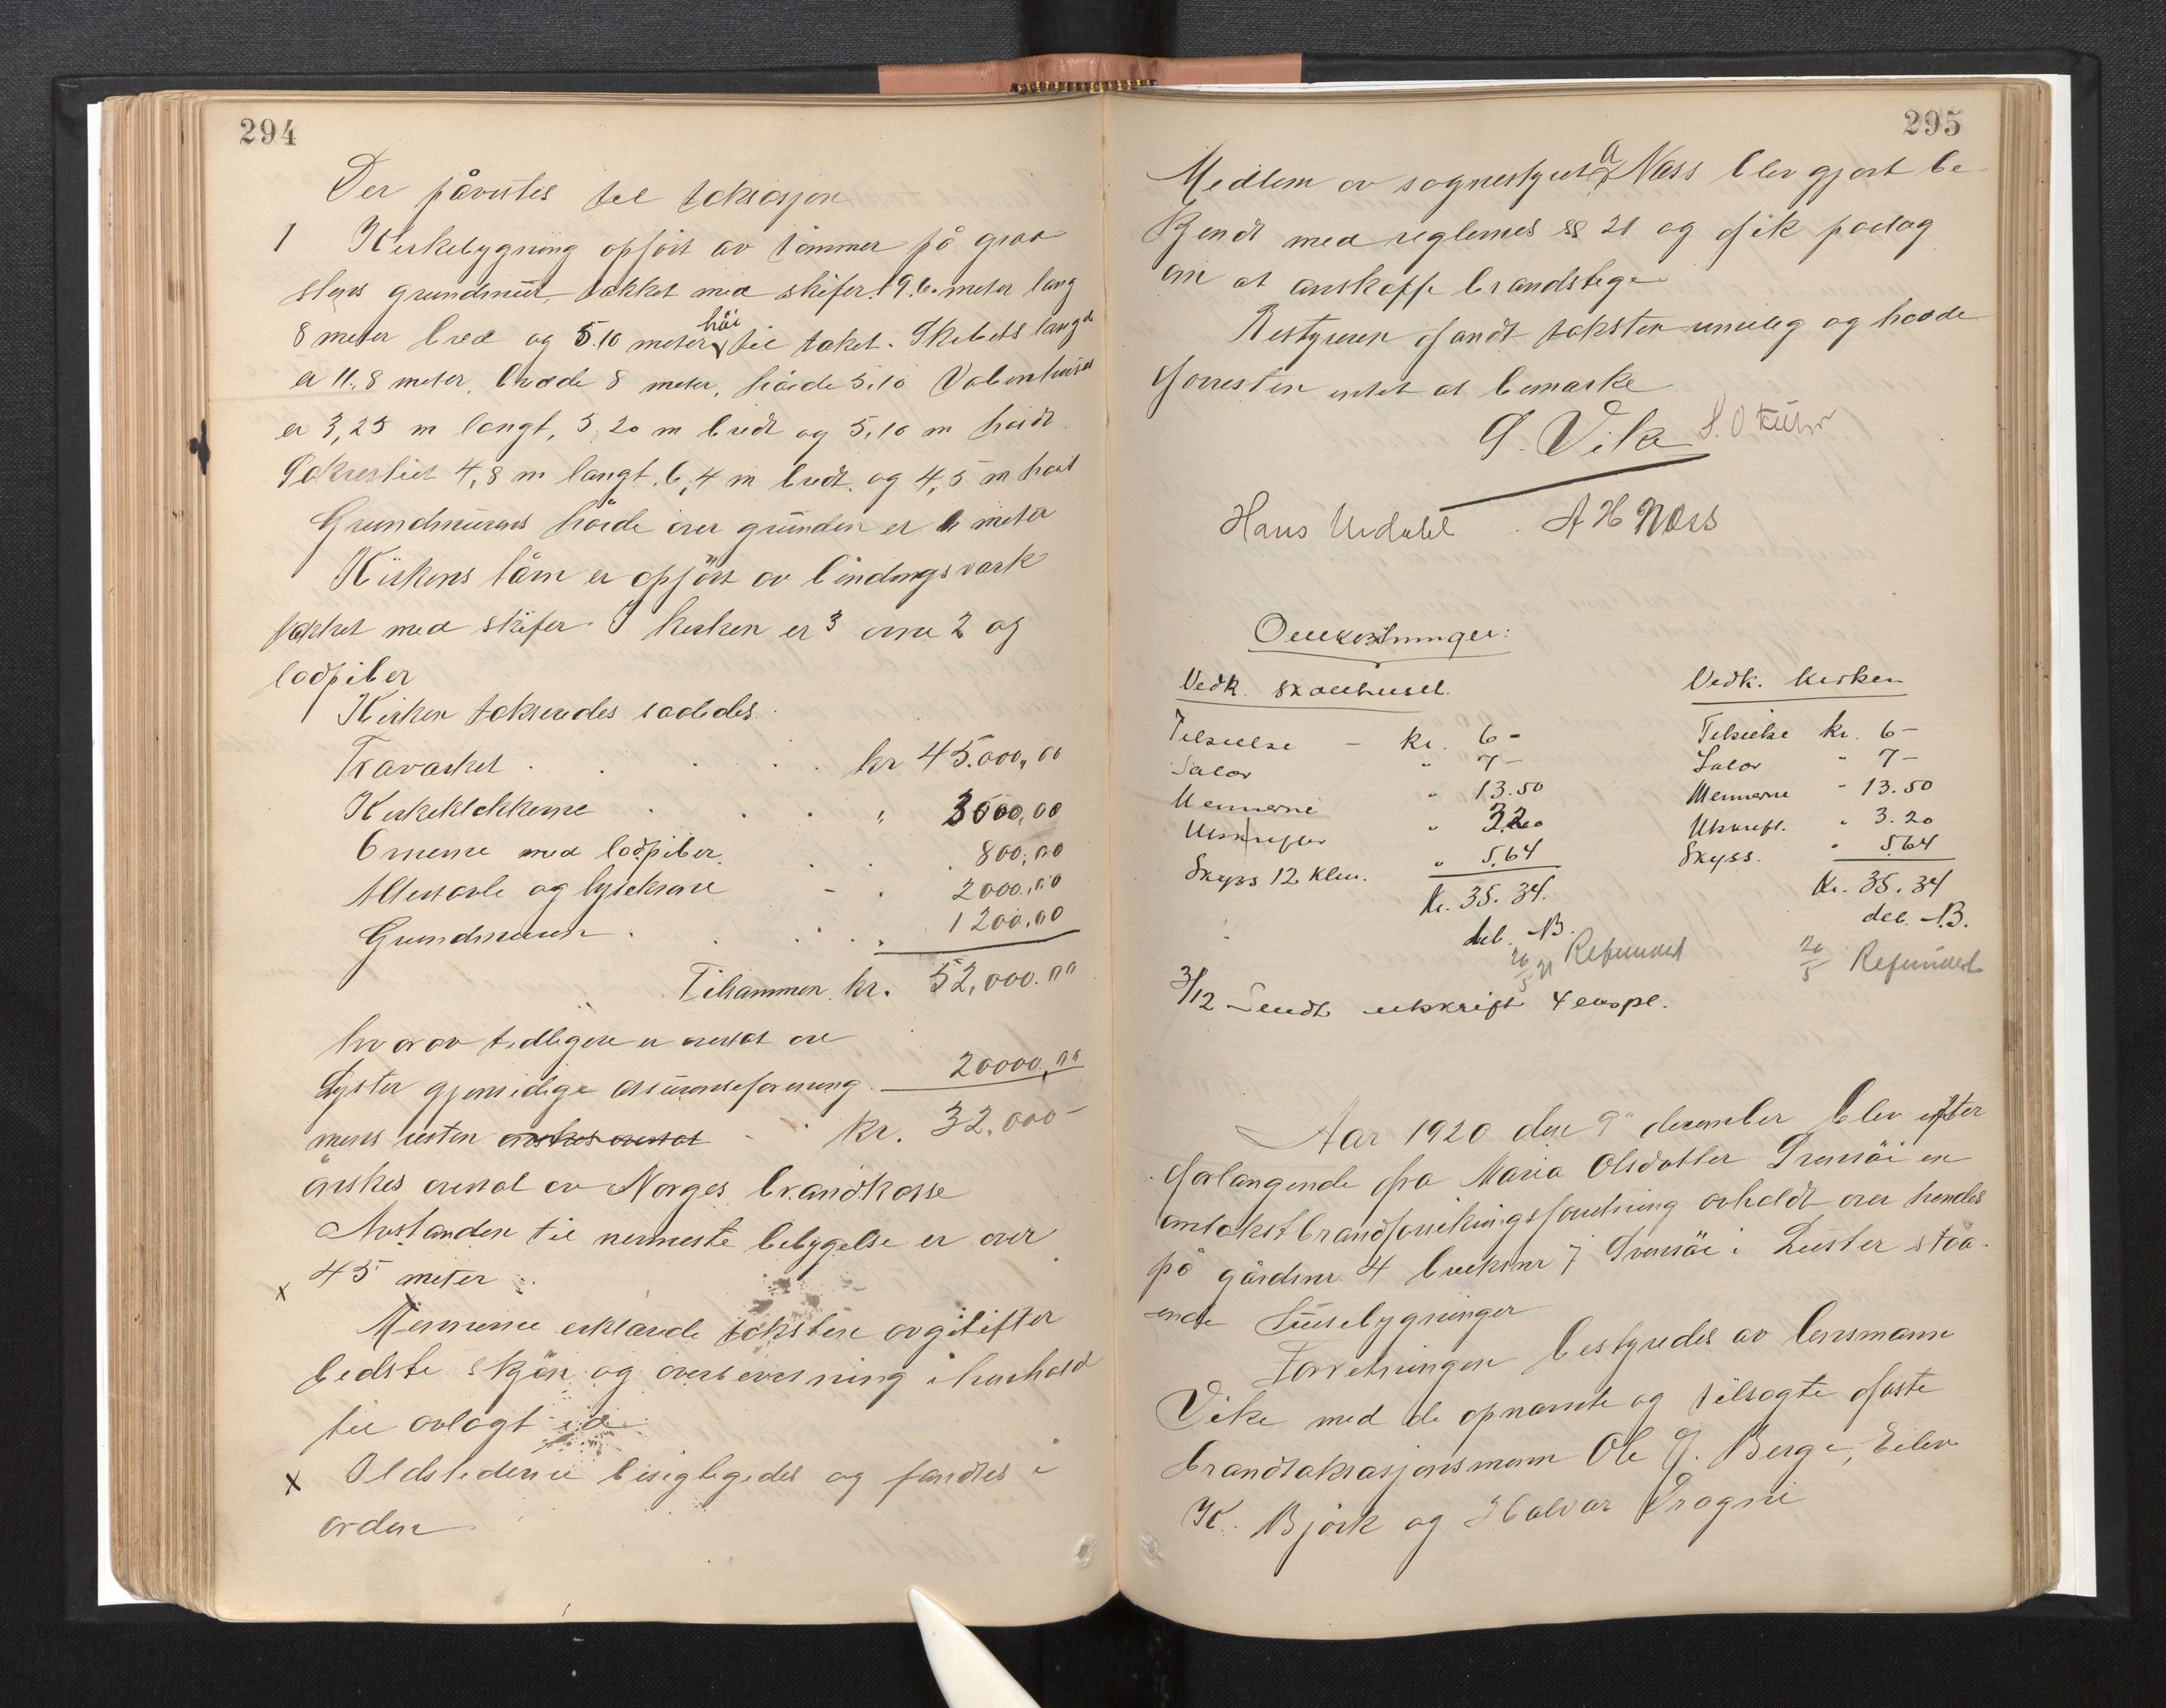 294
Der påvistes til taksasjon
1 Kirkebygning opført av tømmer på graa
stens grundmur takket med skifer. 19.6. meter lang
8 meter bred og 5.10 meter høi til taket. Skibets langd
er 11.8 meter, bredde 8 meter, høide 5.10 Vabenhuset
er 3,25 m langt, 5.20 m bredt og 5.10 m høidt.
Sakrestiet 4,8 m langt. 6,4 m bredt. og 4,5 m høit
Grundmurens høide over grunden er 1 meter
Kirkens tårn er opført av bindingsværk
takket med skifer. I kirken er 3 ovne 2 og
lodpiber
Kirken takseredes saaledes:
Trævarket . . . . . kr 45.000,00
Kirkeklokkerne . . . " 3000,00
Ovnene med lodpiber . . . 800,00
Altertavle og lysekrone - . 2000,00
Grundmuren . . . . " 1200,00
Tilsammen kr. 52,000.00
hvorav tidligere er assurert
Lyster gjensidige assuranseforening. 20000,00
mens resten ønskes assurat - kr. 32,000-
ønskes assurat av Norges brandkasse
Avstanden til nermeste bebygelse er over
x 45 meter
Mennerne erklærede taksten avgit efter
bedste skjøn og overbevisning i henhold
til avlagt ed
x Ildstederne besigtigedes og fandtes i
orden
295
Medlem av sognestyret A Næss blev gjort be-
kjendt med reglernes §§ 21 og fik paalag
om at anskaffe brandstige
Bestyreren fandt taksten rimelig og havde
forresten intet at bemærke
S. Vika
Hans Urdahl . A H Næss
Omkostninger:
Vedk. skolehuset. Vedk. kirken
Tilsielse - kr. 6 - Tilsielse kr. 6 -
Salær " 7 - Salær " 7 -
Mennerne " 13.50 Mennerne " 13.50
Utskrifter " 3.20 Utskrift. " 3.20
Skyss 12 klm. " 5.64 Skyss. " 5.64
Kr. 35.34. Kr. 35.34
deb. B. deb. B.
20/5 21 Refundert 20/5 Refundert
3/12 Sendt utskrift 4 expl.
Aar 1920 den 9de december blev efter
forlangende fra Maria Olsdatter Svensøi en
omtakstbrandforsikringsforretning avholdt over hendes
på gårdsnr. 4 bruksnr 7 Svensøi i Luster stå-
ende husebygninger
Forretningen bestyredes av lensmann
Vike med de opnævnte og tilsagte faste
brandtaksasjonsmenn Ole J. Berge, Eilev
K. Bjørk og Halvar Drægni